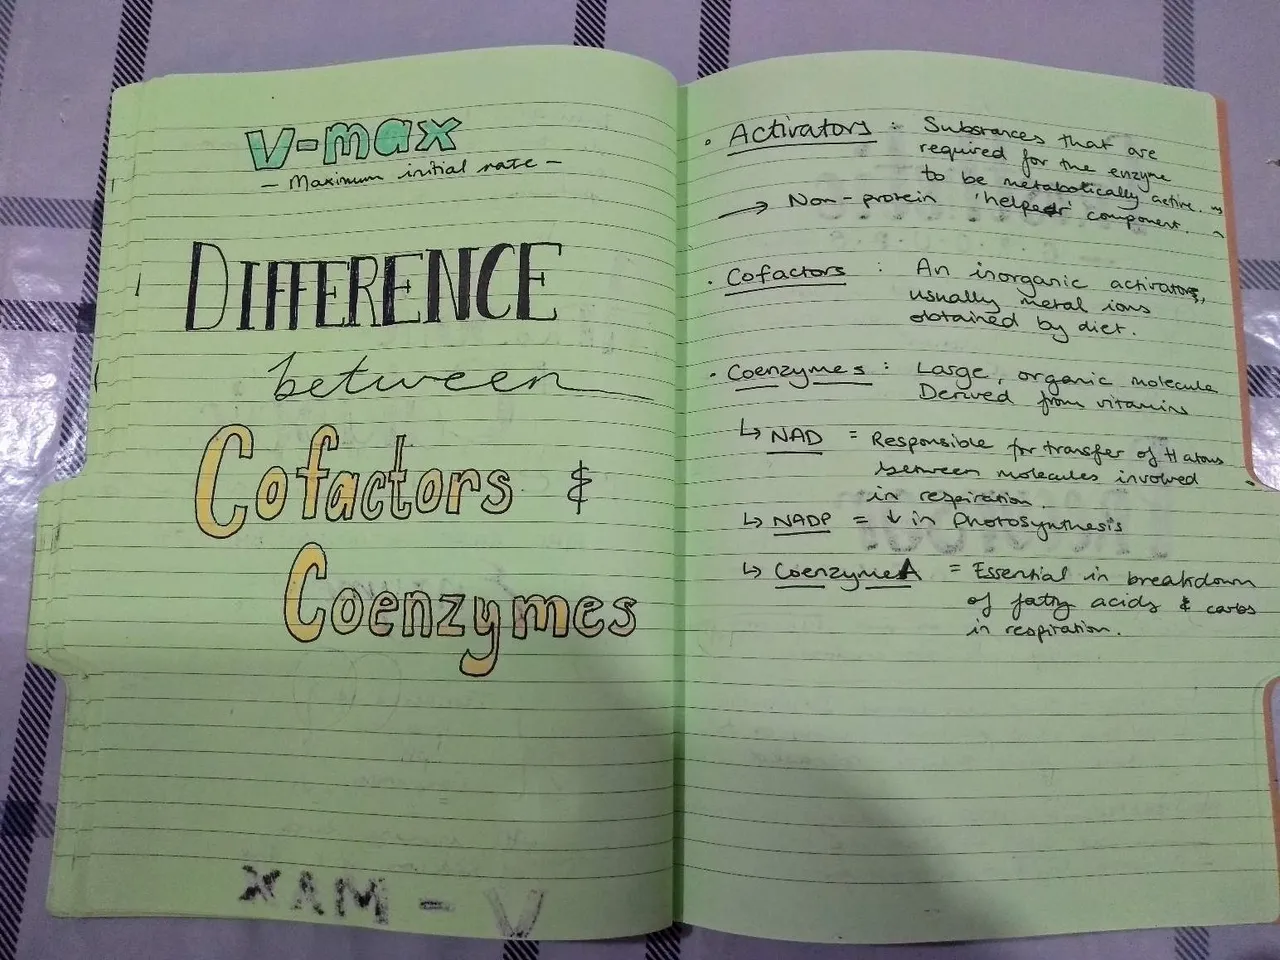 V-max
- Maximum initial rate -
DIFFERENCE
between
Cofactors &
Coenzymes
V-MAX
• Activators : Substances that are
required for the enzyme
to be metabolically active.
→ Non-protein 'helper' component.
• Cofactors : An inorganic activators,
usually metal ions
obtained by diet.
• Coenzymes : Large, organic molecule
Derived from vitamins
↳ NAD = Responsible for transfer of H atoms
between molecules involved
in respiration.
↳ NADP = ↓ in Photosynthesis
↳ CoenzymeA = Essential in breakdown
of fatty acids & carbs
in respiration.